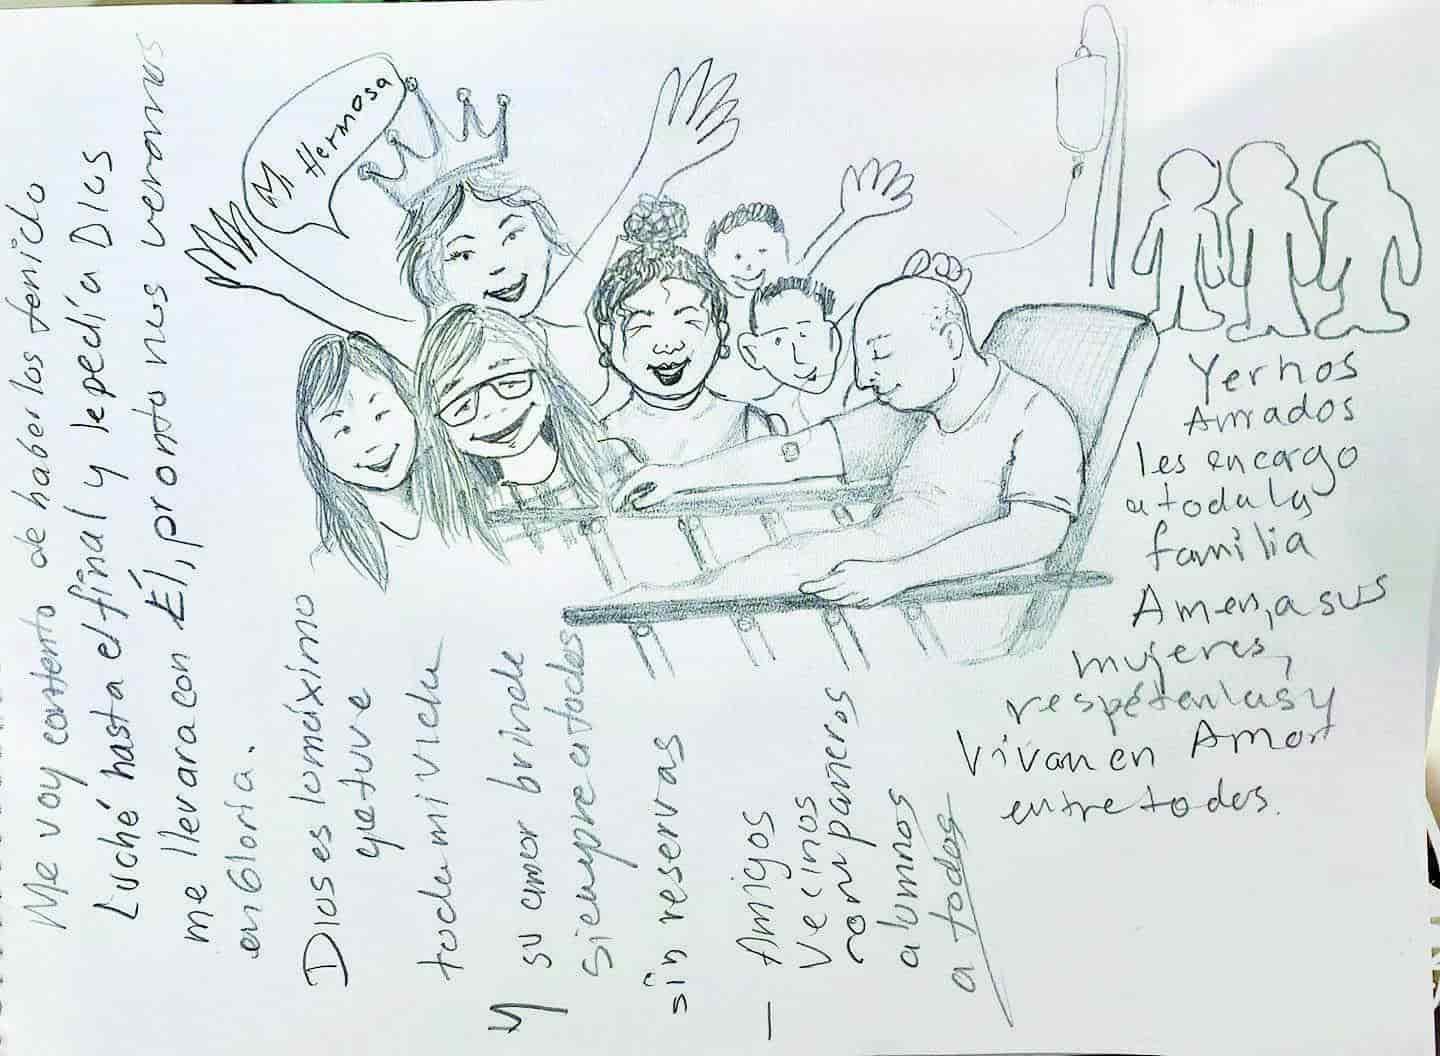 Mi
Hermosa
Me voy contento de haberlos tenido
Luché hasta el final y le pedí a Dios
me llevara con Él, pronto nos veremos
en Gloria.
Dios es lo máximo
q' estuve
toda mi vida
y su amor brinde
siempre a todos
sin reservas
— Amigos
Vecinos
compañeros
alumnos
a todos
Yernos
Amados
les encargo
a toda la
familia
Amen, a sus
mujeres,
respétenlas y
Vivan en Amor
entre todos.